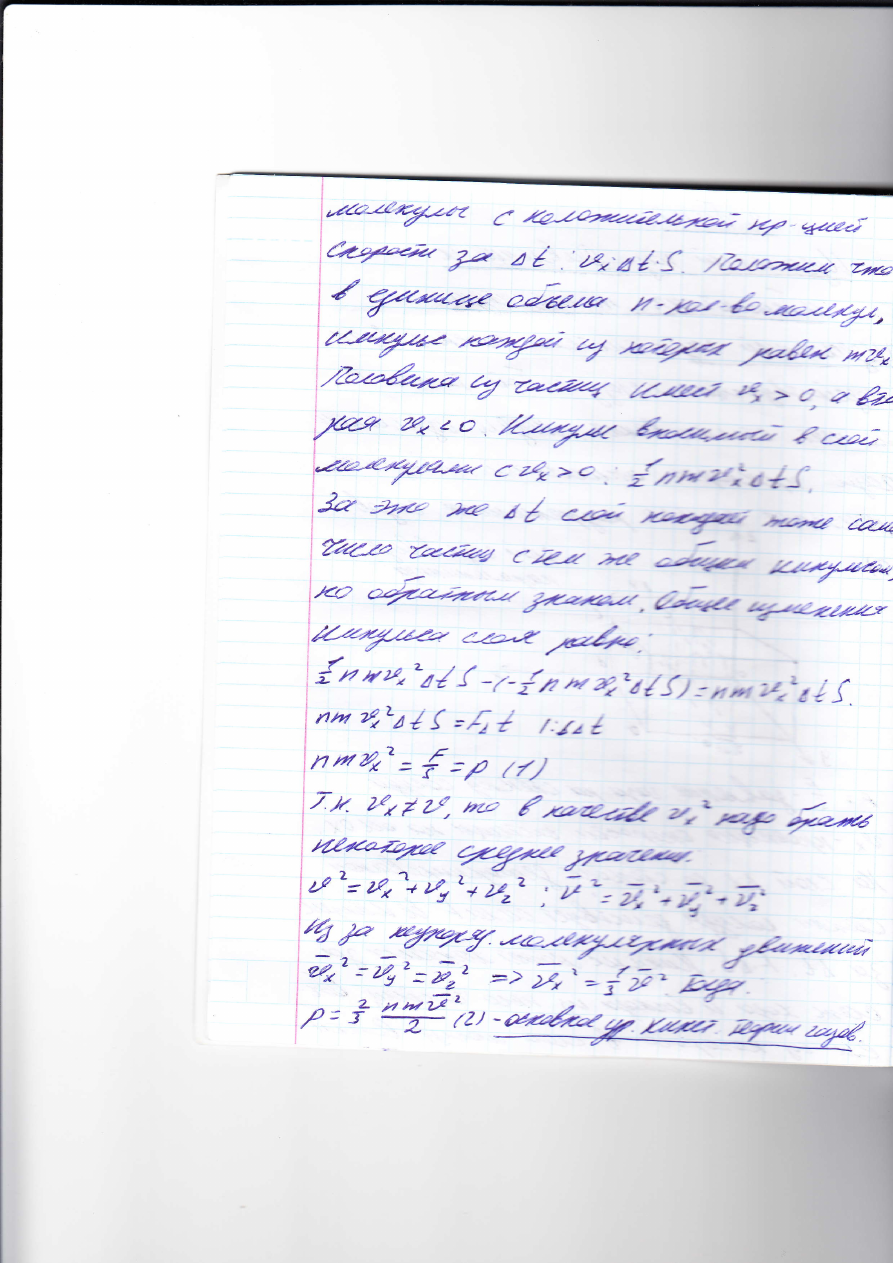 молекулы с положительной пр-цией
скорости за Δt : 𝑣ₓ·Δt·S. Положим что
в единице объема n - кол-во молекул,
импульс каждой из которых равен m𝑣ₓ
Половина из частиц имеет 𝑣ₓ > 0, а вто
рая 𝑣ₓ < 0. Импульс вносимый в слой
молекулами с 𝑣ₓ > 0 : ½ n m 𝑣ₓ² Δt S.
За это же Δt слой покидает тоже само
число частиц с тем же общим импульсом,
но обратным знаком. Общее изменения
импульса слоя равно:
½ n m 𝑣ₓ² Δt S - (-½ n m 𝑣ₓ² Δt S) = n m 𝑣ₓ² Δt S.
n m 𝑣ₓ² Δt S = FΔt |:SΔt
n m 𝑣ₓ² = F/S = p (1)
Т.к. 𝑣ₓ ≠ 𝑣, то в качестве 𝑣ₓ² надо брать
некоторое среднее значение.
𝑣² = 𝑣ₓ² + 𝑣_y² + 𝑣_z² ; 𝑣̅² = 𝑣̅ₓ² + 𝑣̅_y² + 𝑣̅_z²
Из за неупоряд. молекулярных движений
𝑣̅ₓ² = 𝑣̅_y² = 𝑣̅_z² => 𝑣̅ₓ² = ⅓ 𝑣̅² Тогда.
p = ⅔ n m 𝑣̅² / 2 (2) - основное ур. кинет. теории газов.